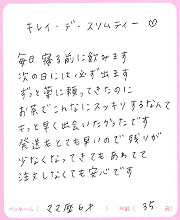 キレイ・デ・スリムティー ♡
毎日寝る前に飲みます
次の日には必ず出ます
ずっと薬に頼ってきたのに
お茶でこんなにスッキリするなんて
もっと早く出会いたかったです
発送もとても早いので残りが
少なくなってきてもあわてて
注文しなくても安心です
ペンネーム( ママ歴6才 ) 年齢( 35 歳)